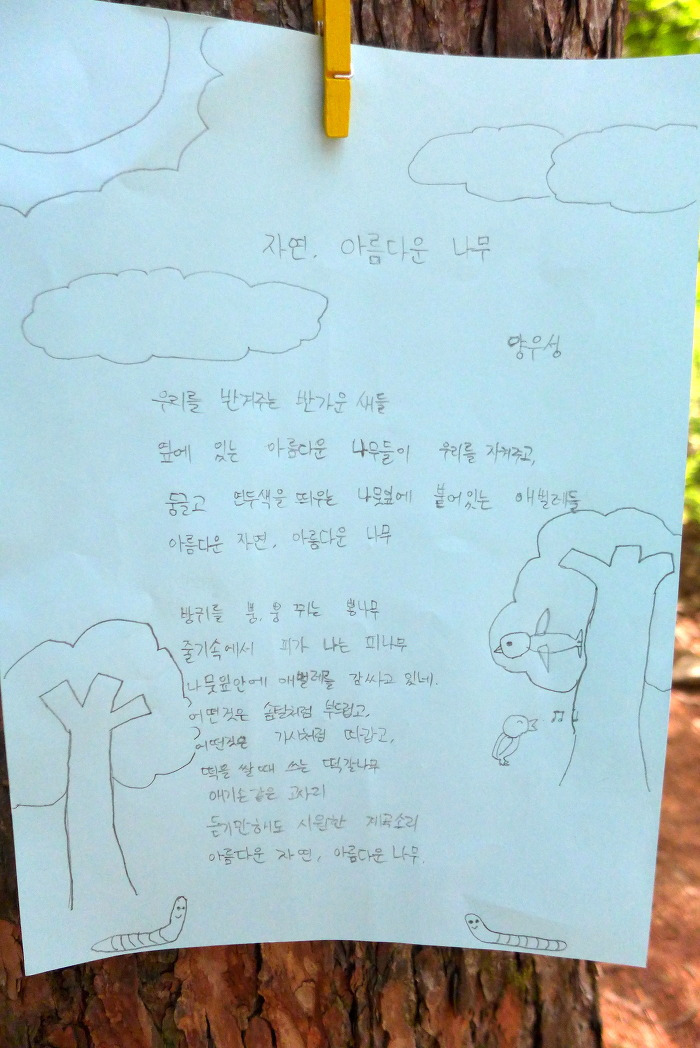 자연, 아름다운 나무
양우성
우리를 반겨주는 반가운 새들
옆에 있는 아름다운 나무들이 우리를 지켜주고,
둥글고 연두색을 띄우는 나뭇잎에 붙어있는 애벌레들
아름다운 자연, 아름다운 나무
방귀를 뽕, 뽕 뀌는 뽕나무
줄기속에서 피가 나는 피나무
나뭇잎안에 애벌레를 감싸고 있네.
어떤것은 솜털처럼 부드럽고,
어떤것은 가시처럼 따갑고,
떡을 쌀 때 쓰는 떡갈나무
애기손 같은 고사리
듣기만해도 시원한 계곡소리
아름다운 자연, 아름다운 나무.